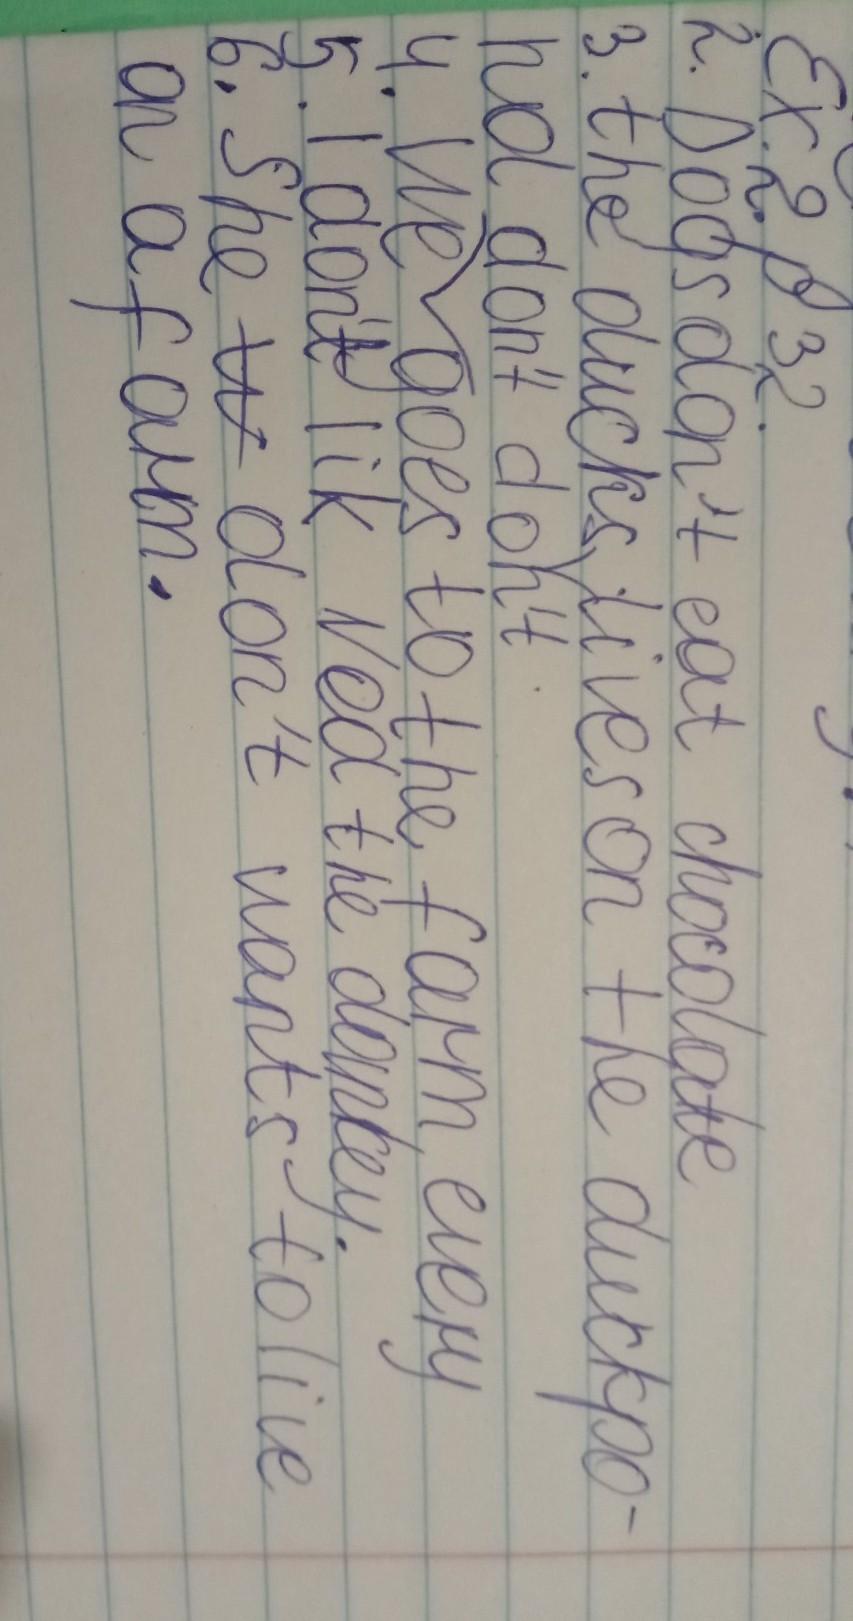 Ex. 2. p 32.
2. Dogs don't eat chocolate
3. the ducks lives on the duckpo-
nd don't don't
4. We goes to the farm every
5. I don't lik Ved the donkey.
6. She don't wants to live
on a farm.